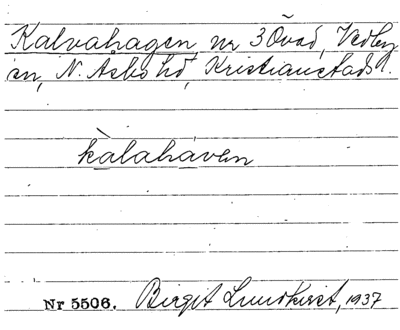 Kalvahagen, nr 3 Övad, Vedby
sn, N. Asbo hd, Kristianstads l.
kàlahàven
Nr 5506. Birgit Lundkvist, 1937